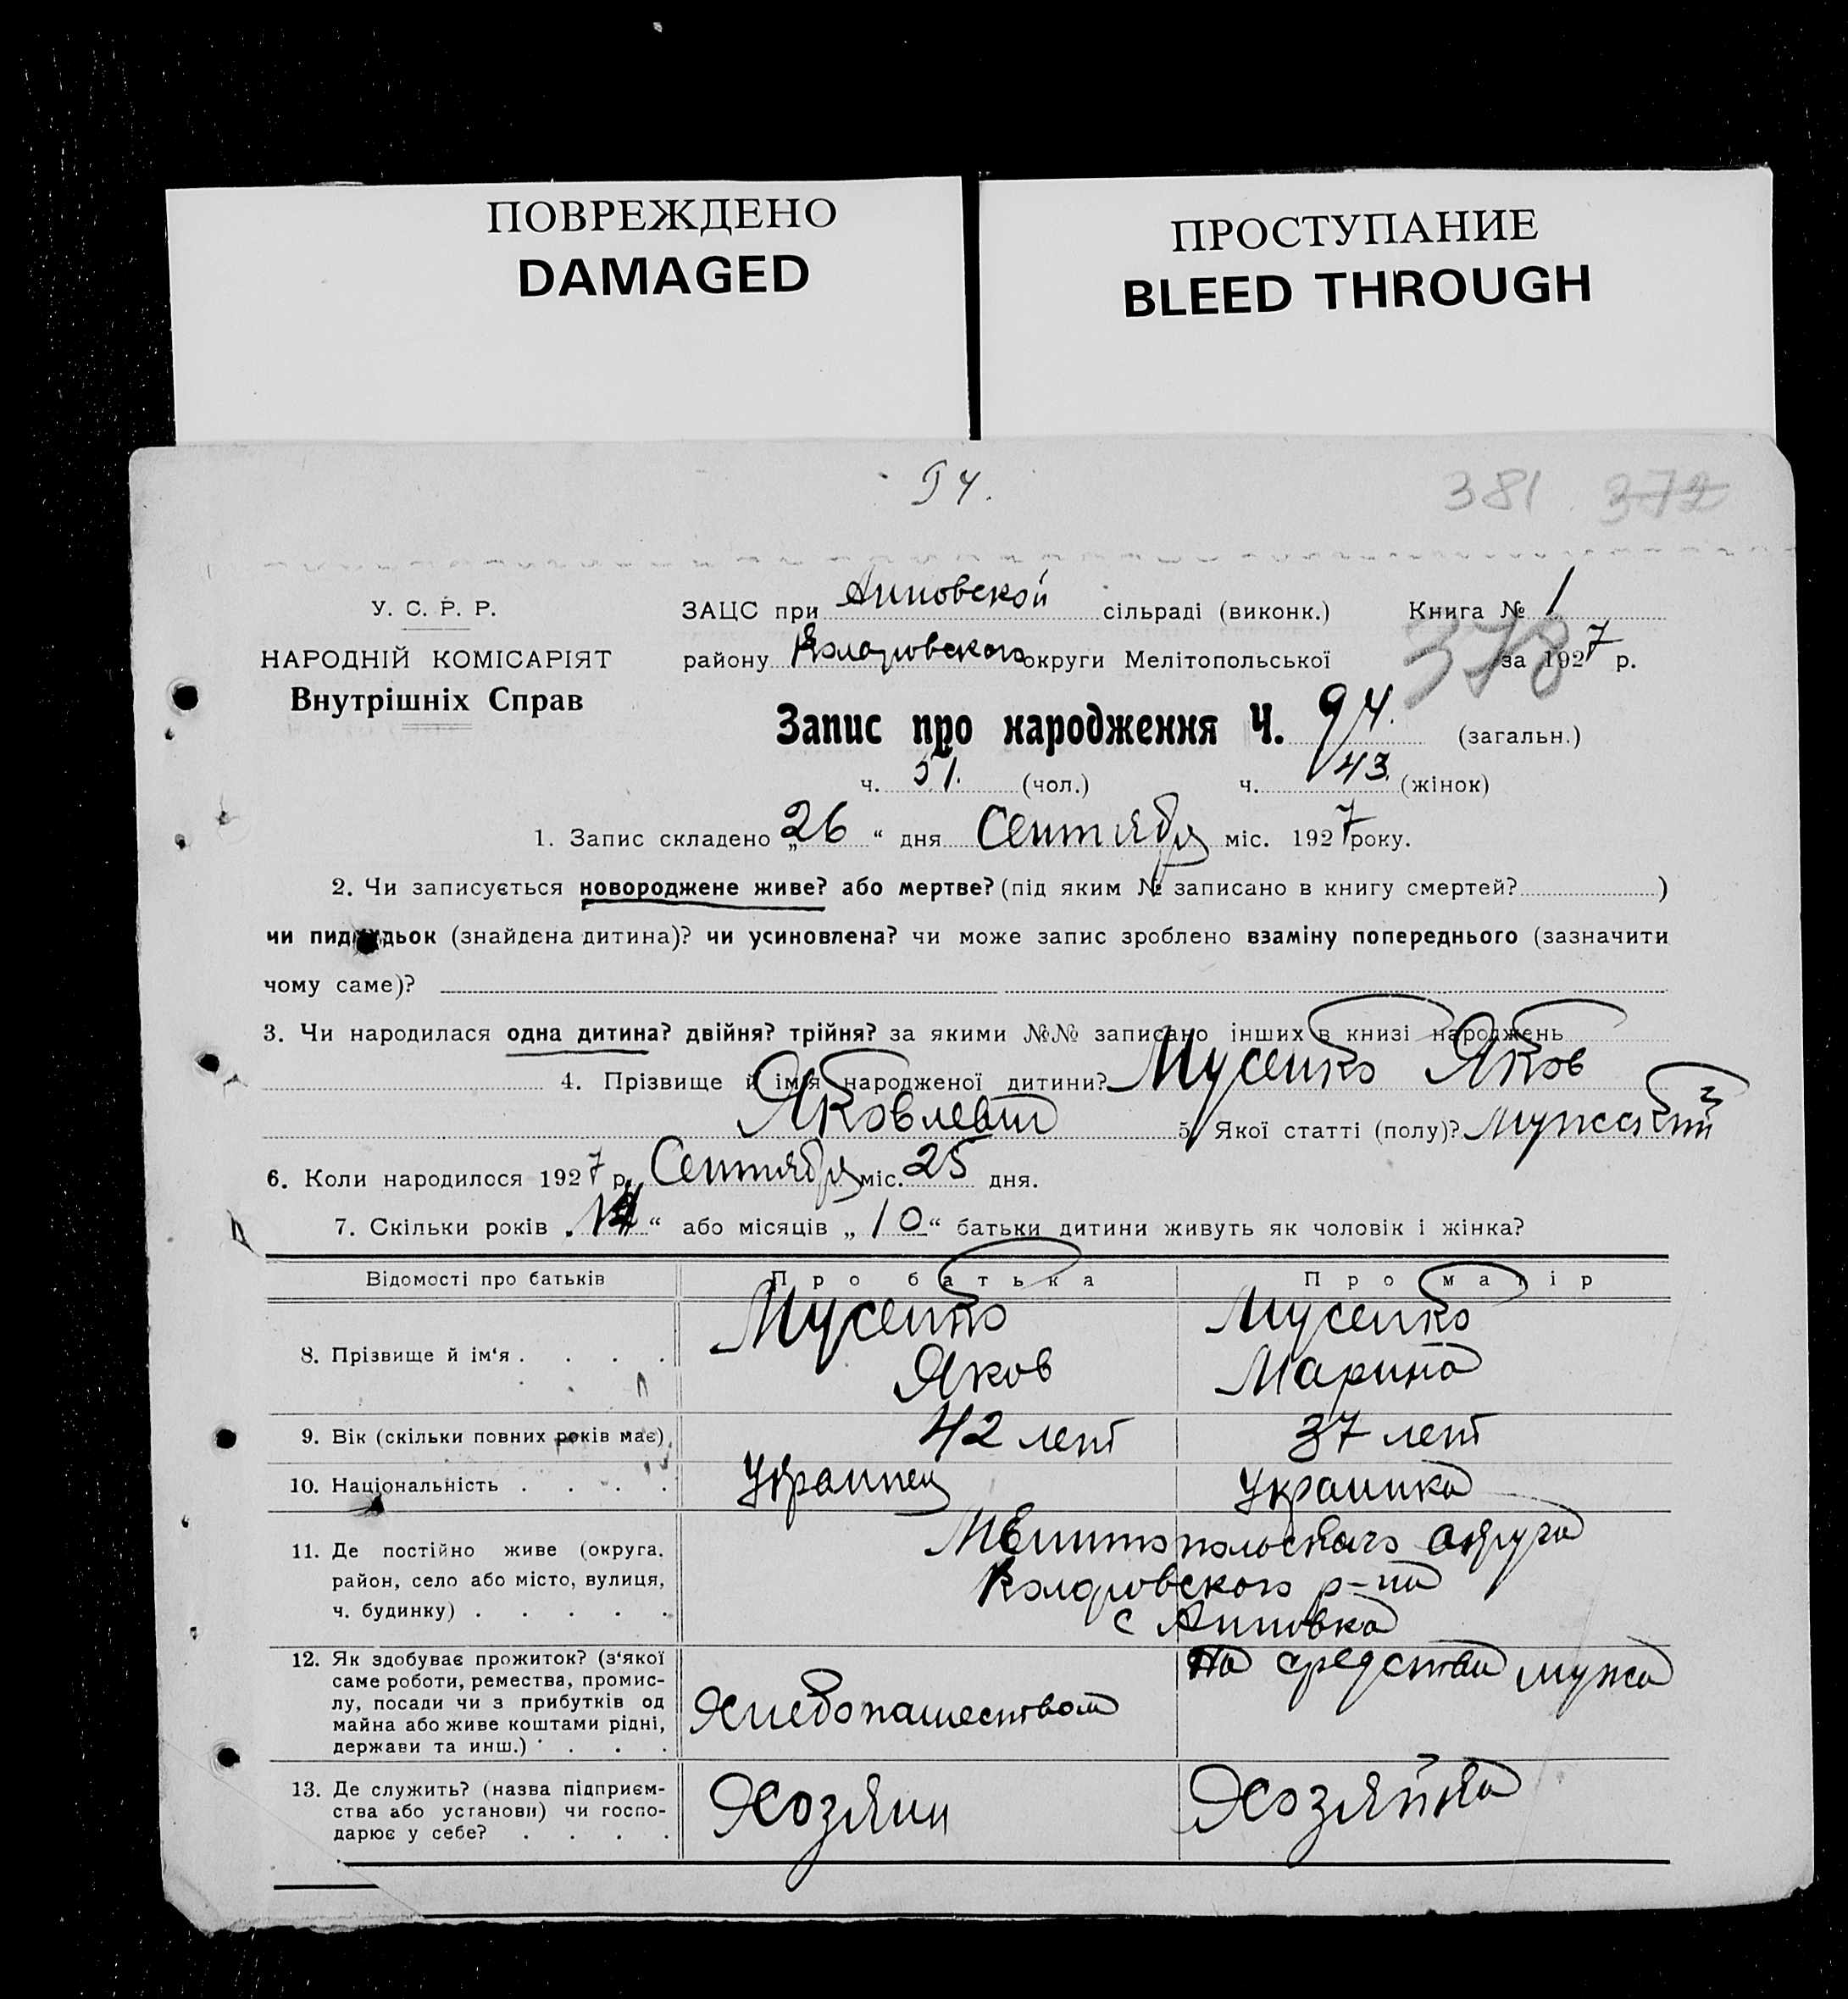 ПОВРЕЖДЕНО
DAMAGED
ПРОСТУПАНИЕ
BLEED THROUGH
94.
381 372
У. С. Р. Р.
НАРОДНІЙ КОМІСАРІЯТ
Внутрішніх Справ
ЗАЦС при Анновской сільраді (виконк.) Книга № 1
району Коларовского округи Мелітопольської за 1927 р.
378
Запис про народження Ч. 94. (загальн.)
ч. 51. (чол.) ч. 43. (жінок)
1. Запис складено „26“ дня Сентября міс. 1927 року.
2. Чи записується новороджене живе? або мертве? (під яким № записано в книгу смертей? )
чи пидкидьок (знайдена дитина)? чи усиновлена? чи може запис зроблено взаміну попереднього (зазначити
чому саме)?
3. Чи народилася одна дитина? двійня? трійня? за якими №№ записано інших в книзі народжень
4. Прізвище й ім'я народженої дитини? Мусенко Яков
Яковлевич 5. Якої статті (полу)? Мужеский
6. Коли народилося 1927 р. Сентября міс. 25 дня.
7. Скільки років „ “ або місяців „10“ батьки дитини живуть як чоловік і жінка?
Відомості про батьків Про батька Про матір
8. Прізвище й ім'я . . . .
Мусенко
Яков
Мусенко
Марина
9. Вік (скільки повних років має) 42 лет 37 лет
10. Національність . . . . Украинец Украинка
11. Де постійно живе (округа,
район, село або місто, вулиця,
ч. будинку) . . . . .
Мелитопольского округа
Коларовского р-на
с Анновка
12. Як здобуває прожиток? (з'якої
саме роботи, ремества, промис-
лу, посади чи з прибутків од
майна або живе коштами рідні,
держави та инш.) . . . .
Хлебопашеством
На средства мужа
13. Де служить? (назва підприєм-
ства або установи) чи госпо-
дарює у себе? . . . .
Хозяин
Хозяйка